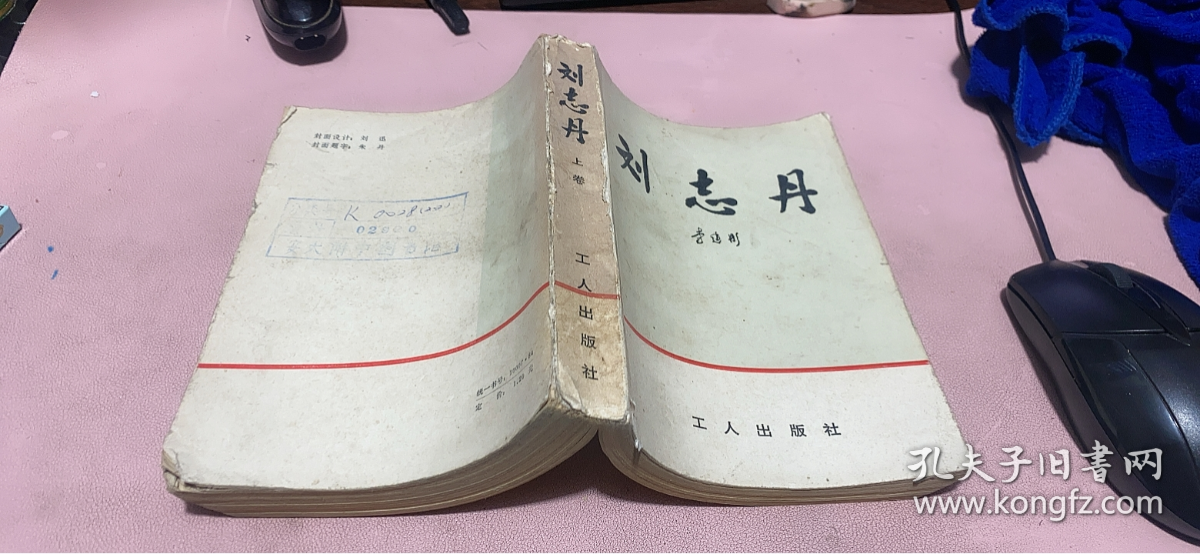 封面设计：刘 迅
封面题字：朱 丹
K
02000
统一书号：
定 价：1.25 元
刘志丹
上卷
工人出版社
刘志丹
李建彤
工人出版社
孔夫子旧书网
www.kongfz.com